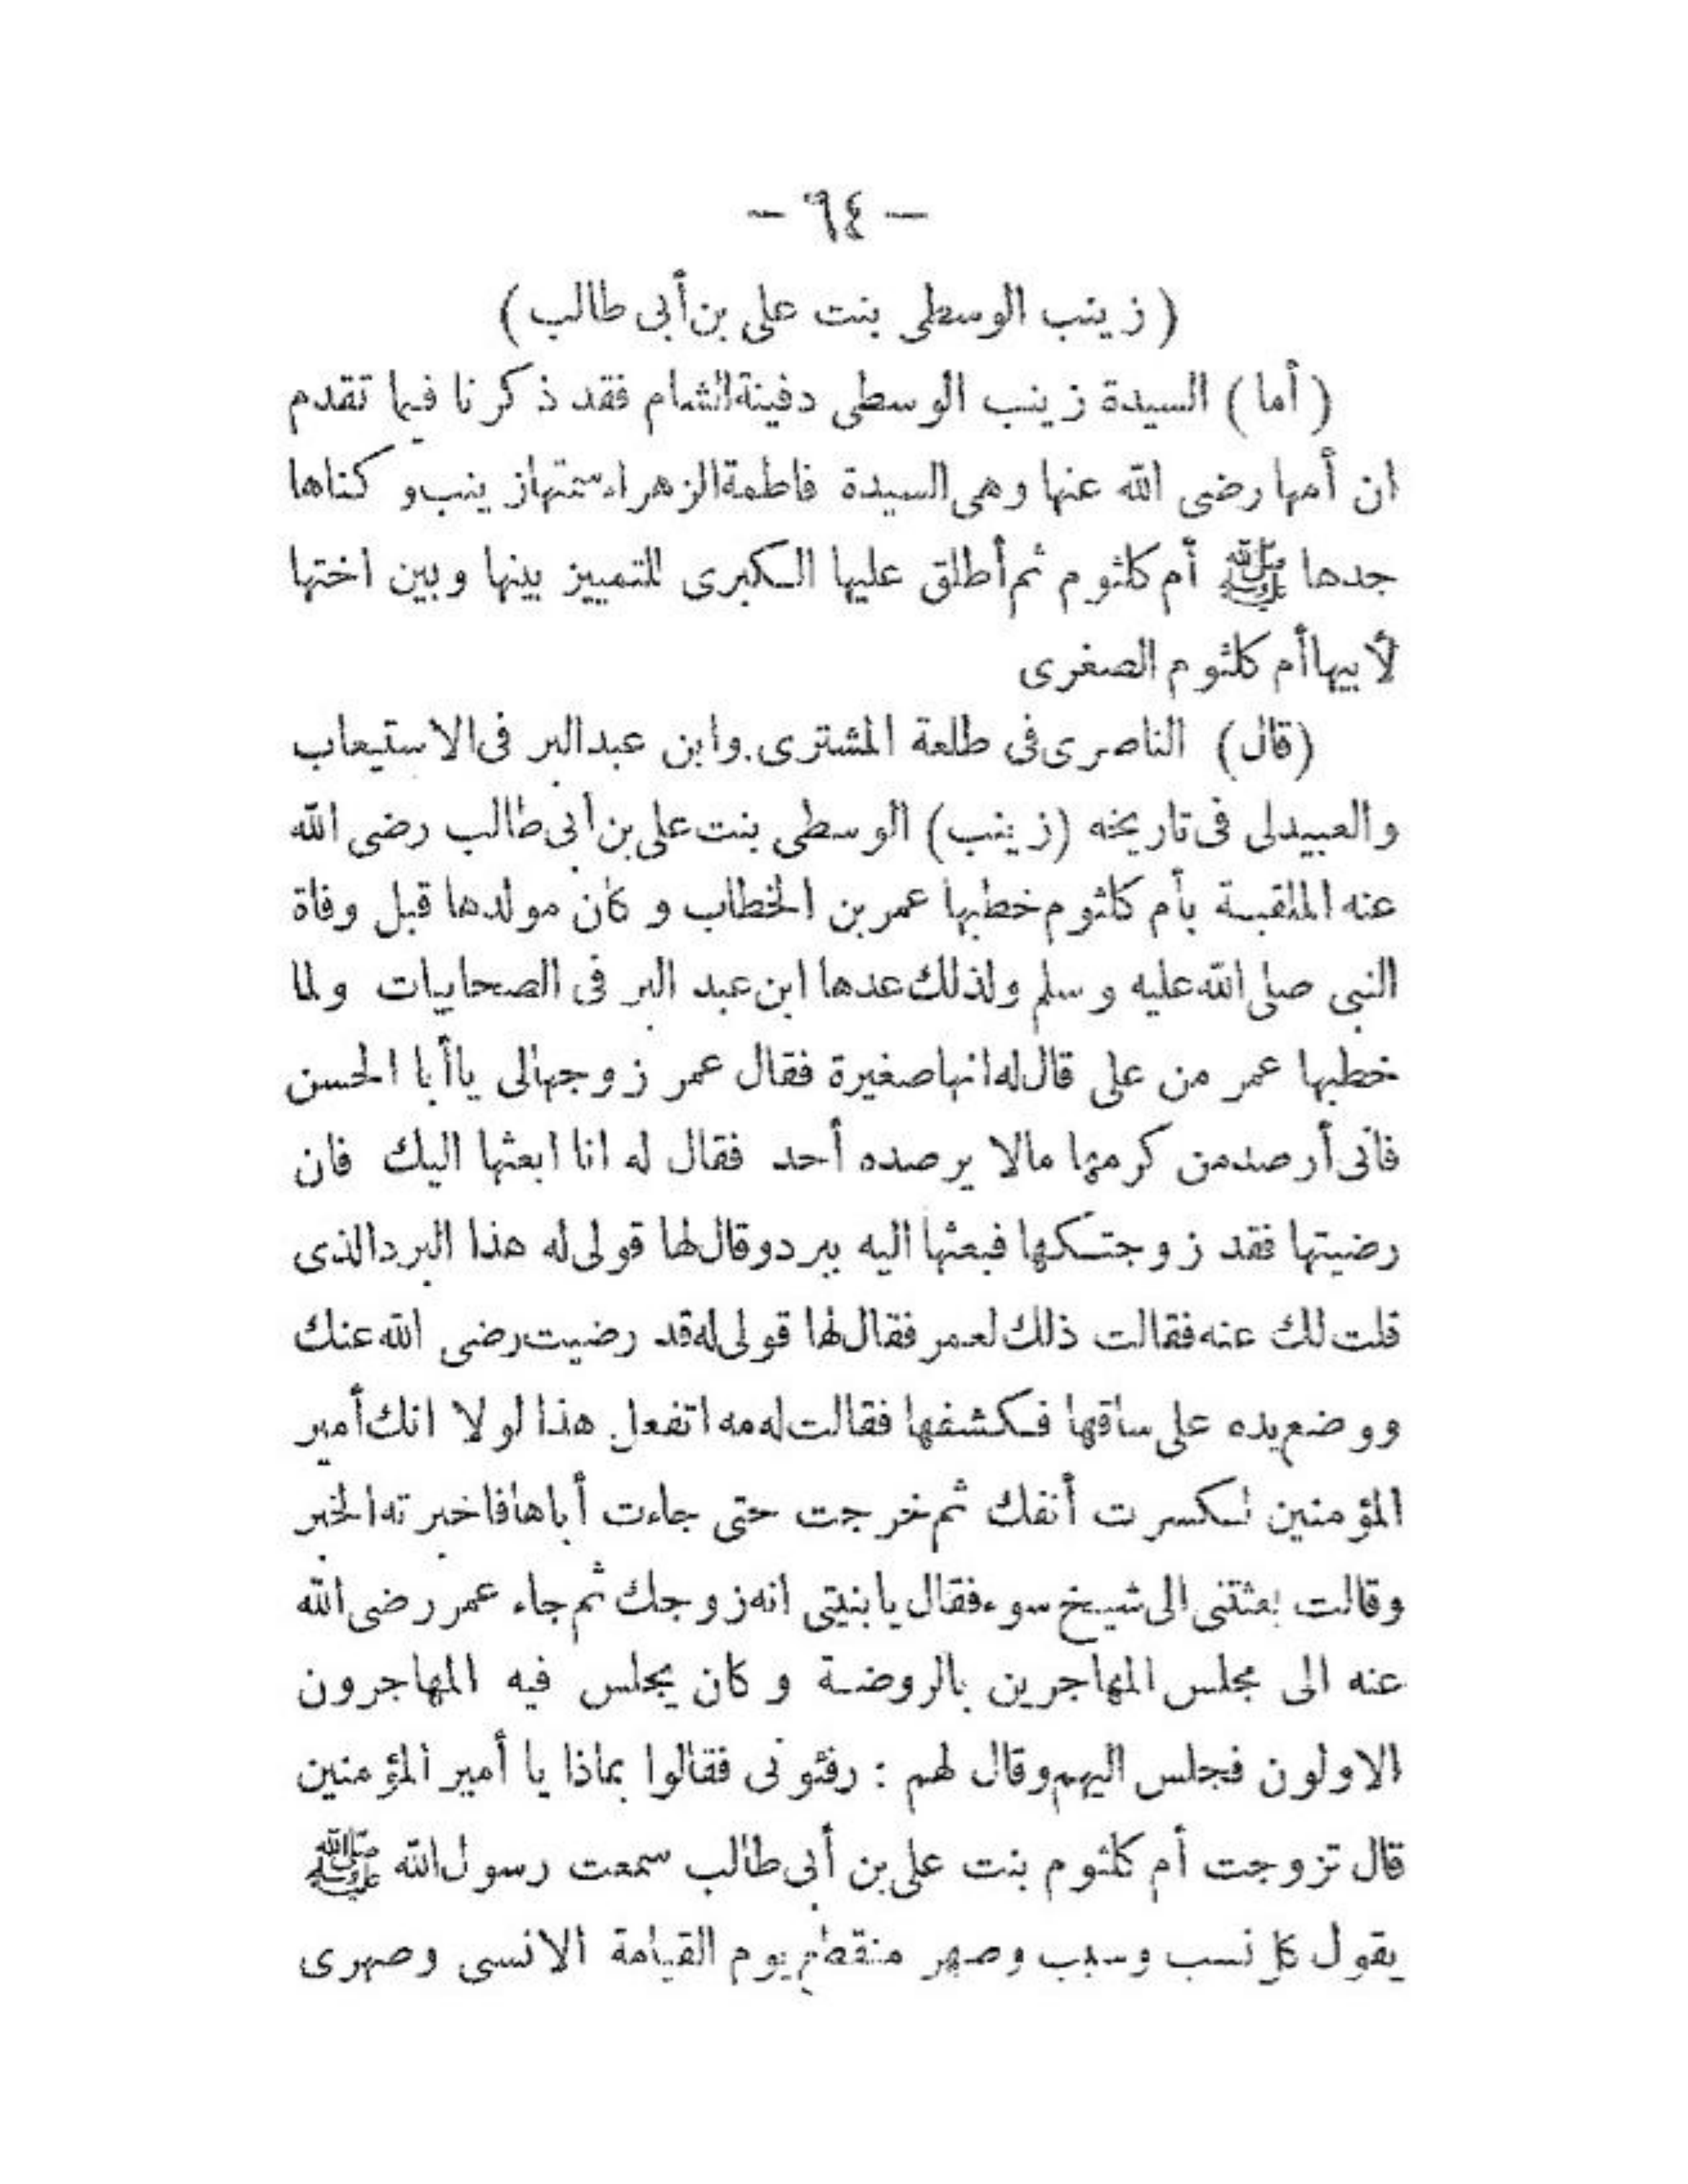 - ٦٤ -
( زينب الوسطى بنت على بن أبى طالب )
( أما ) السيدة زينب الوسطى دفينة الشام فقد ذكرنا فيما تقدم
ان أمها رضى الله عنها وهى السيدة فاطمة الزهراء سمتها زينب وكناها
جدها ﷺ أم كلثوم ثم أطلق عليها الكبرى للتمييز بينها وبين اختها
لأبيها أم كلثوم الصغرى
(قال) الناصرى فى طلعة المشترى. وابن عبد البر فى الاستيعاب
والعبيدلى فى تاريخه (زينب) الوسطى بنت على بن أبى طالب رضى الله
عنه الملقبة بأم كلثوم خطبها عمر بن الخطاب وكان مولدها قبل وفاة
النبى صلى الله عليه وسلم ولذلك عدها ابن عبد البر فى الصحابيات ولما
خطبها عمر من على قال له انها صغيرة فقال عمر زوجها لى يا أبا الحسن
فانى أرصد من كرمها مالا يرصده أحد فقال له انا ابعثها اليك فان
رضيتها فقد زوجتكها فبعثها اليه ببرد وقال لها قولى له هذا البرد الذى
قلت لك عنه فقالت ذلك لعمر فقال لها قولى له قد رضيت رضى الله عنك
ووضع يده على ساقها فكشفها فقالت له مه اتفعل هذا لولا انك أمير
المؤمنين لكسرت أنفك ثم خرجت حتى جاءت أباها فاخبرته الخبر
وقالت بعثتنى الى شيخ سوء فقال يا بنيتى انه زوجك ثم جاء عمر رضى الله
عنه الى مجلس المهاجرين بالروضة وكان يجلس فيه المهاجرون
الاولون فجلس اليهم وقال لهم : رفئونى فقالوا بماذا يا أمير المؤمنين
قال تزوجت أم كلثوم بنت على بن أبى طالب سمعت رسول الله ﷺ
يقول كل نسب وسبب وصهر منقطع يوم القيامة الا نسبى وصهرى